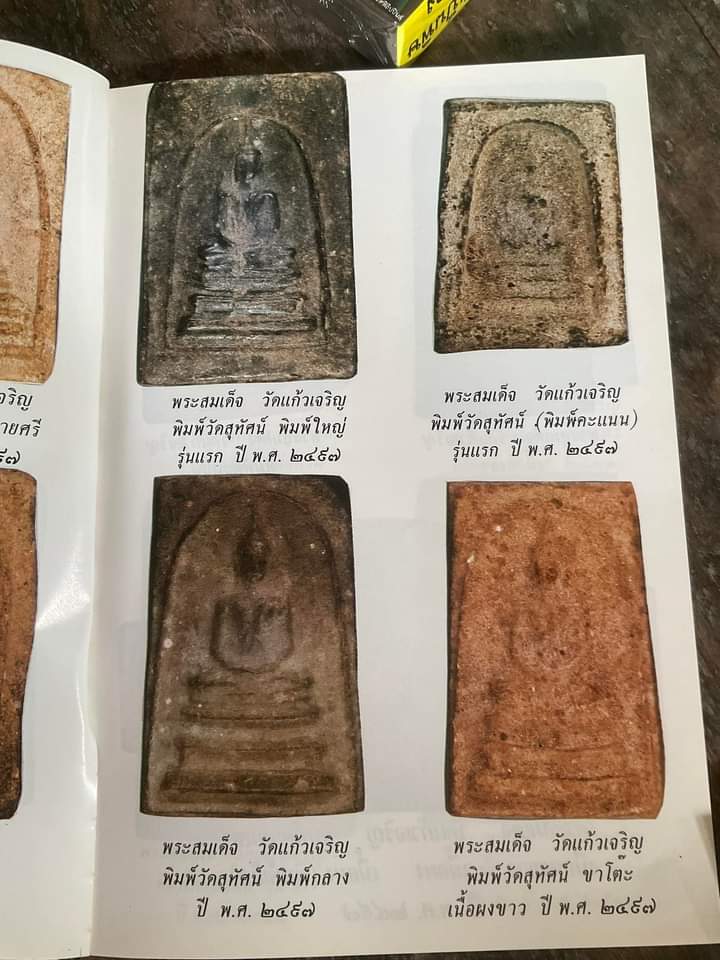 จริญ
ายศรี
๙๗
พระสมเด็จ วัดแก้วเจริญ
พิมพ์วัดสุทัศน์ พิมพ์ใหญ่
รุ่นแรก ปี พ.ศ. ๒๔๙๗
พระสมเด็จ วัดแก้วเจริญ
พิมพ์วัดสุทัศน์ (พิมพ์คะแนน)
รุ่นแรก ปี พ.ศ. ๒๔๙๗
พระสมเด็จ วัดแก้วเจริญ
พิมพ์วัดสุทัศน์ พิมพ์กลาง
ปี พ.ศ. ๒๔๙๗
พระสมเด็จ วัดแก้วเจริญ
พิมพ์วัดสุทัศน์ ขาโต๊ะ
เนื้อผงขาว ปี พ.ศ. ๒๔๙๗